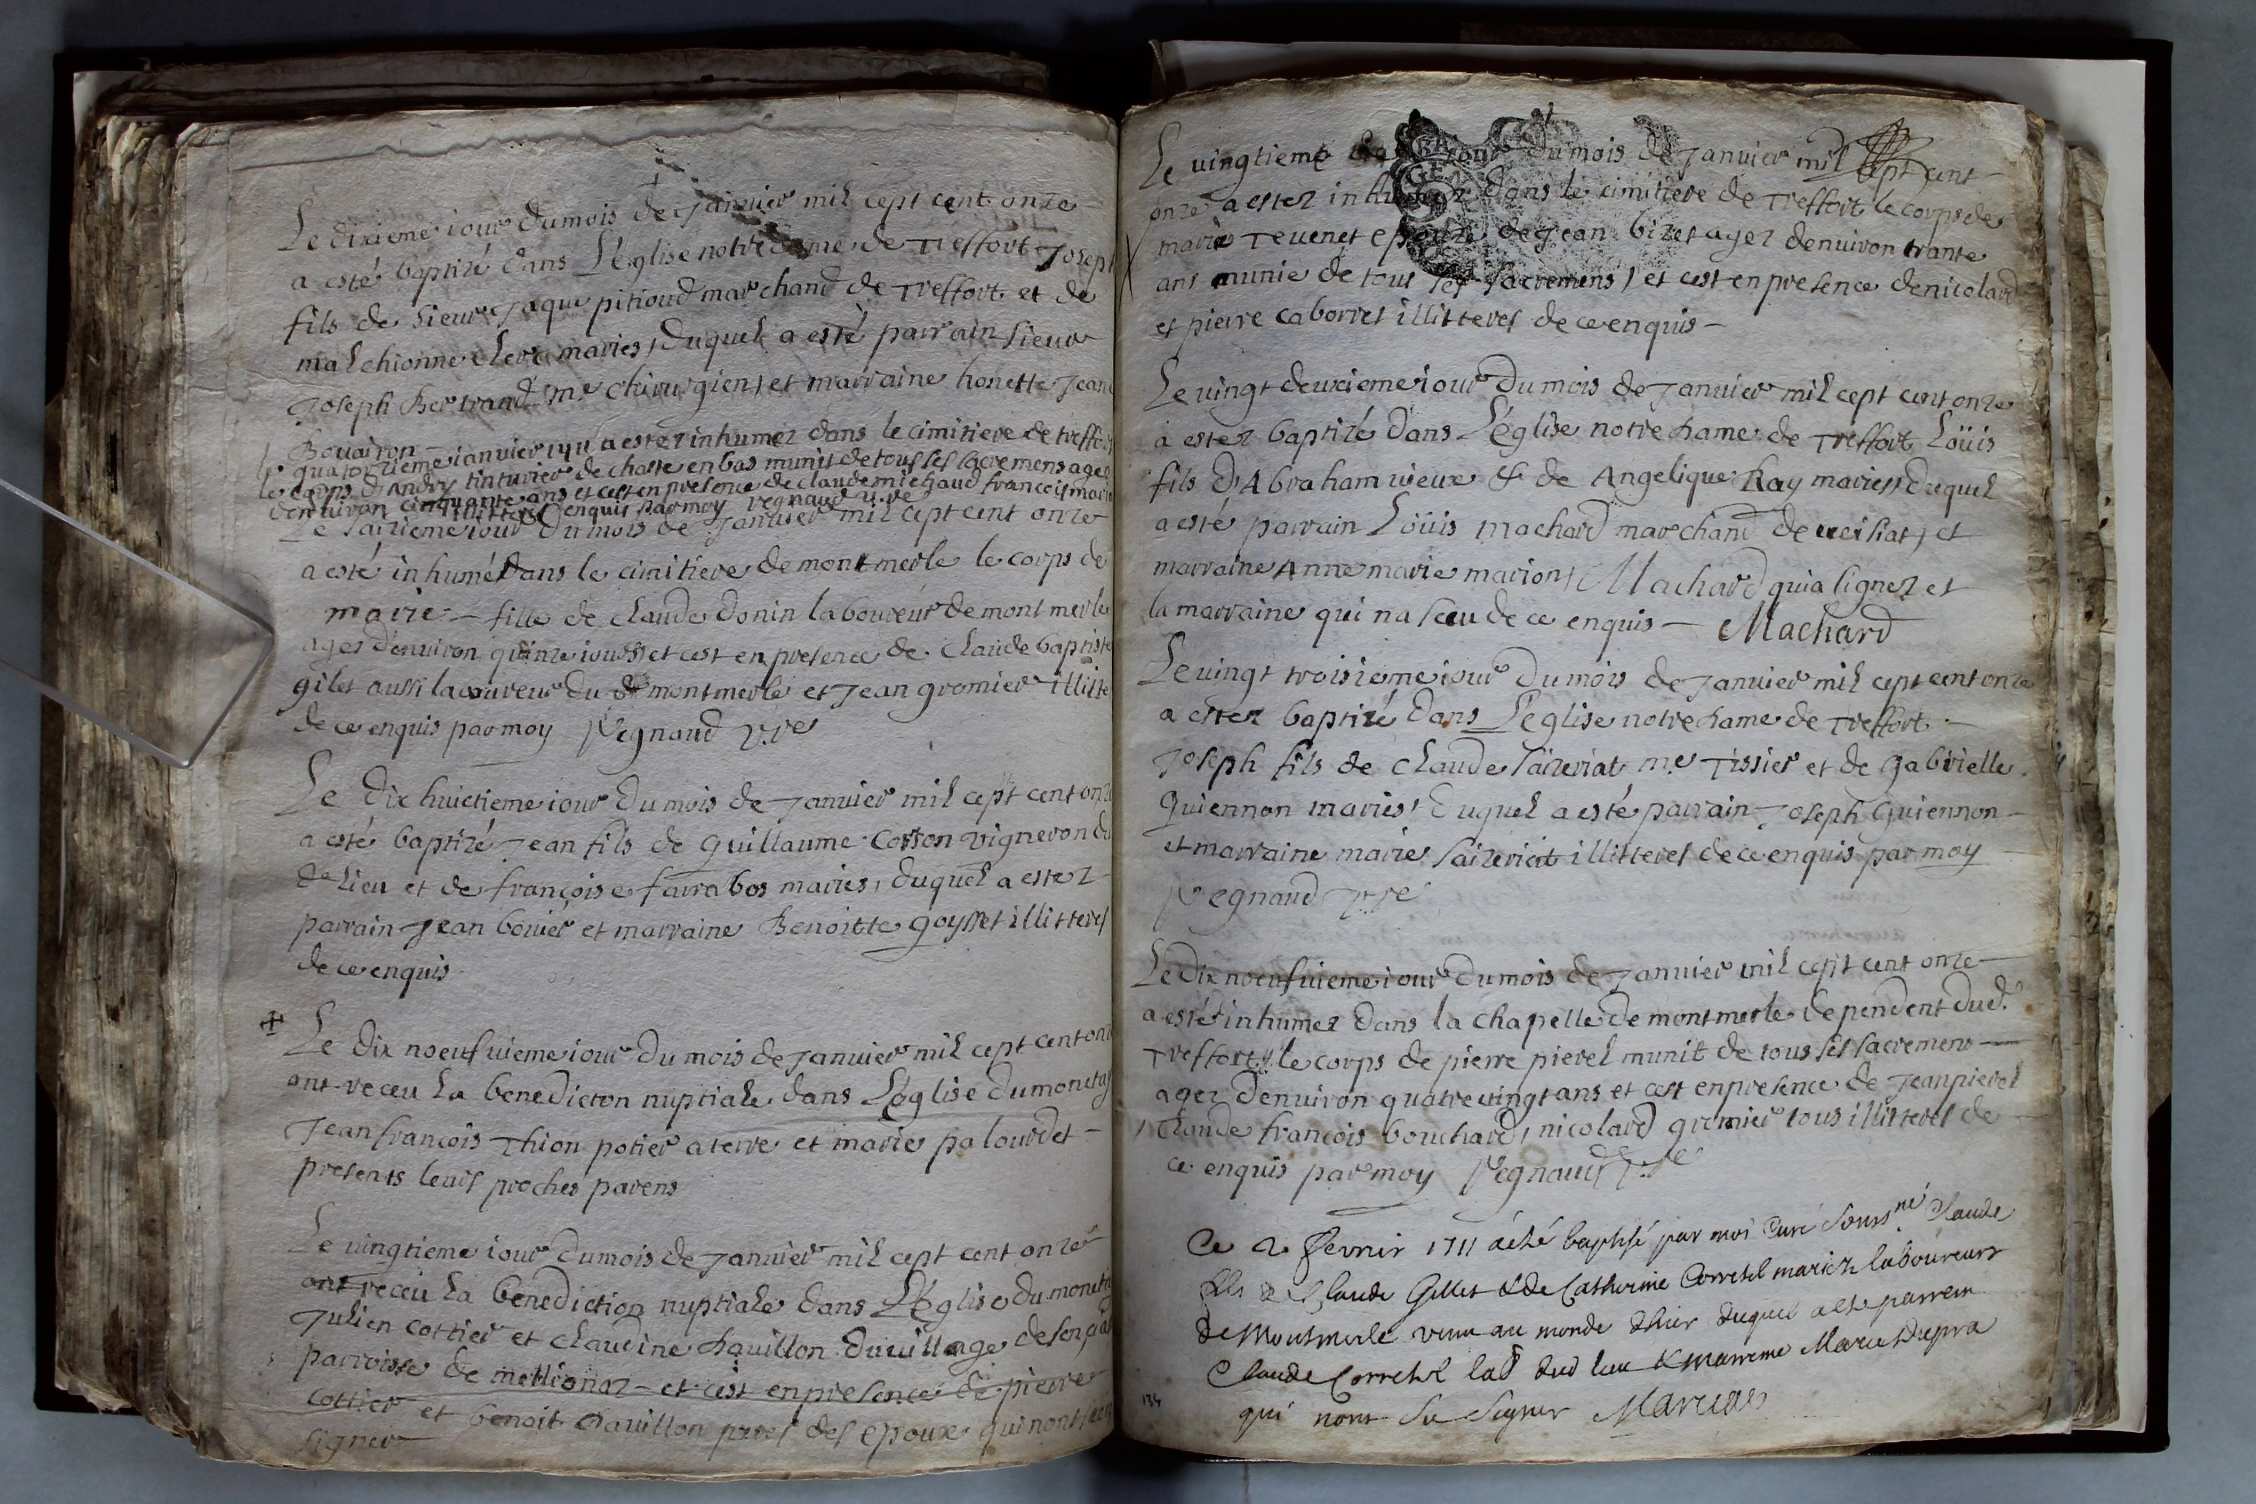 Le dixieme iour du mois de Janvier mil cept cent onze
a esté baptizé dans L'église notre dame de Treffort Joseph
fils de sieur Jaque pitioud marchand de Treffort et de
malchionne clerc maries, duquel a esté parrain sieur
Joseph Bertrand me chirurgien, et marraine honette Jeane
Bouairon
le quatorzieme ianvier 1711 a ester inhumez dans le cimitiere de treffort
le corps d'Andry tinturier de chasse en bas munit de tous ses sacremens agez
denviron cinquante ans et cest en presence de claude michaud francois
illitteres enquis par moy regnaud v.re
Le saizieme iour du mois de Janvier mil cept cent onze
a esté inhumé dans le cimitiere de montmerle le corps de
marie fille de claude donin laboureur de montmerle
agez d'enuiron quinze iours et cest en presence de Claude baptiste
gilet aussi laboureur du montmerle et Jean gromier illitte
de ce enquis par moy Regnaud v.re
Le dix huictieme iour du mois de Janvier mil cept cent onze
a esté baptizé Jean fils de guillaume Cotton vigneron du
d. Lieu et de françoise farrabos maries, duquel a ester
parrain Jean bouier et marraine Benoitte goysset illitteres
de ce enquis
Le dix noeufuieme iour du mois de Janvier mil cept cent onz
ont receu La benedicton nuptiale dans L'église du monetay
Jean françois Thion potier a terre et marie palourdet
presents leurs proches parens
Le vingtieme iour du mois de Janvier mil cept cent onze
ont receu La benediction nuptiale dans L'Église du
Julien cottier et claudine chavillon du village de
parroisse de et cest en presence de pierre
cottier et benoit chavillon peres des epoux qui nont
signer
Le vingtieme iour du mois de Janvier mil cept cent
onze a ester inhumez dans le cimitiere de Treffort le corps de
marie Tevenet epouze de Jean bizet agez denuiron trante
ans munie de tous ses sacremens, et cest en presence de nicolard
et pierre caborret illitteres de ce enquis
Le vingt deuxieme iour du mois de Janvier mil cept cent onze
a ester baptizé dans L'église notre hame de Treffort Loüis
fils d'Abraham vieux & de Angelique Ray maries, duquel
a esté parrain Loüis machard marchand de, et
marraine Anne marie marion, Machard qui a signer et
la marraine qui na sceu de ce enquis Machard
Le vingt troisieme iour du mois de Janvier mil cept cent onze
a ester baptizé dans L'eglise notre hame de Treffort
Joseph fils de claude saizeriat me Tissier et de gabrielle
Guiennon maries, duquel a esté parrain Joseph Guiennon
et marraine marie saizeriat illitteres de ce enquis par moy
Regnaud v.re
Le dix noeufuieme iour du mois de Janvier mil cept cent onze
a esté inhumez dans la chapelle de montmerle dependent dud.
Treffort, le corps de pierre pierel munit de tous ses sacremens
agez d'enuiron quatre vingt ans et cest en presence de Jean pierel
Claude françois bouchard, nicolard gromier tous illitteres de
ce enquis par moy Regnaud v.re
Ce 2 fevrir 1711 a été baptisé par moi Curé souss.né Claude
fils de Claude Gillet & de Catherine Corretel mariez laboureurs
de Montmerle venu au monde d'hier duquel a este parrein
Claude Corretel lab dud lieu & marreine Marie Dupra
qui nont su signer
134